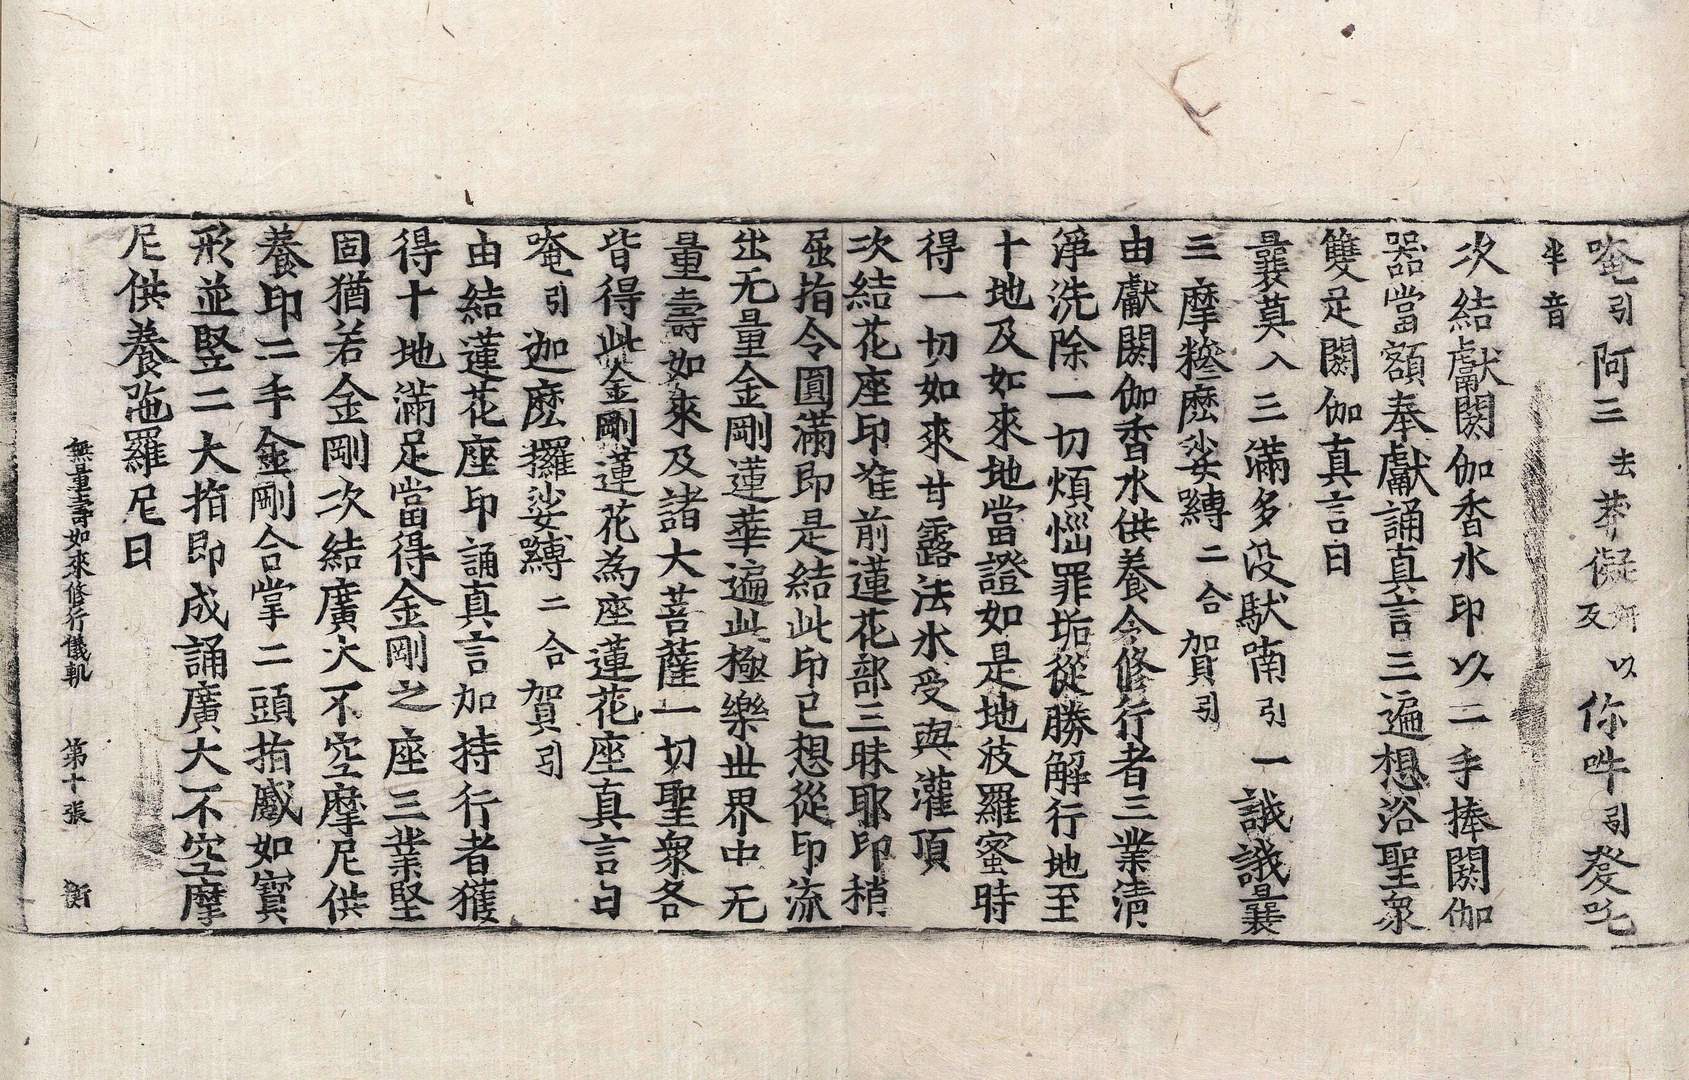 唵引阿三去莽儗妍以反你吽引發吒
半音
次結獻閼伽香水印以二手捧閼伽
器當額奉獻誦真言三遍想浴聖衆
雙足閼伽真言曰
曩莫入三滿多沒馱喃引一誐誐曩
三摩糝麽娑嚩二合賀引
由獻閼伽香水供養令修行者三業清
淨洗除一切煩惱罪垢從勝解行地至
十地及如來地當證如是地波羅蜜時
得一切如來甘露法水受與灌頂
次結花座印准前蓮花部三昧耶印稍
屈指令圓滿即是結此印已想從印流
出无量金剛蓮華遍此極樂世界中无
量壽如來及諸大菩薩一切聖衆各
皆得此金剛蓮花為座蓮花座真言曰
唵引迦麽攞娑嚩二合賀引
由結蓮花座印誦真言加持行者獲
得十地滿足當得金剛之座三業堅
固猶若金剛次結廣大不空摩尼供
養印二手金剛合掌二頭指蹙如寶
形並竪二大指即成誦廣大不空摩
尼供養陁羅尼曰
無量壽如來修行儀軌 第十張 衡